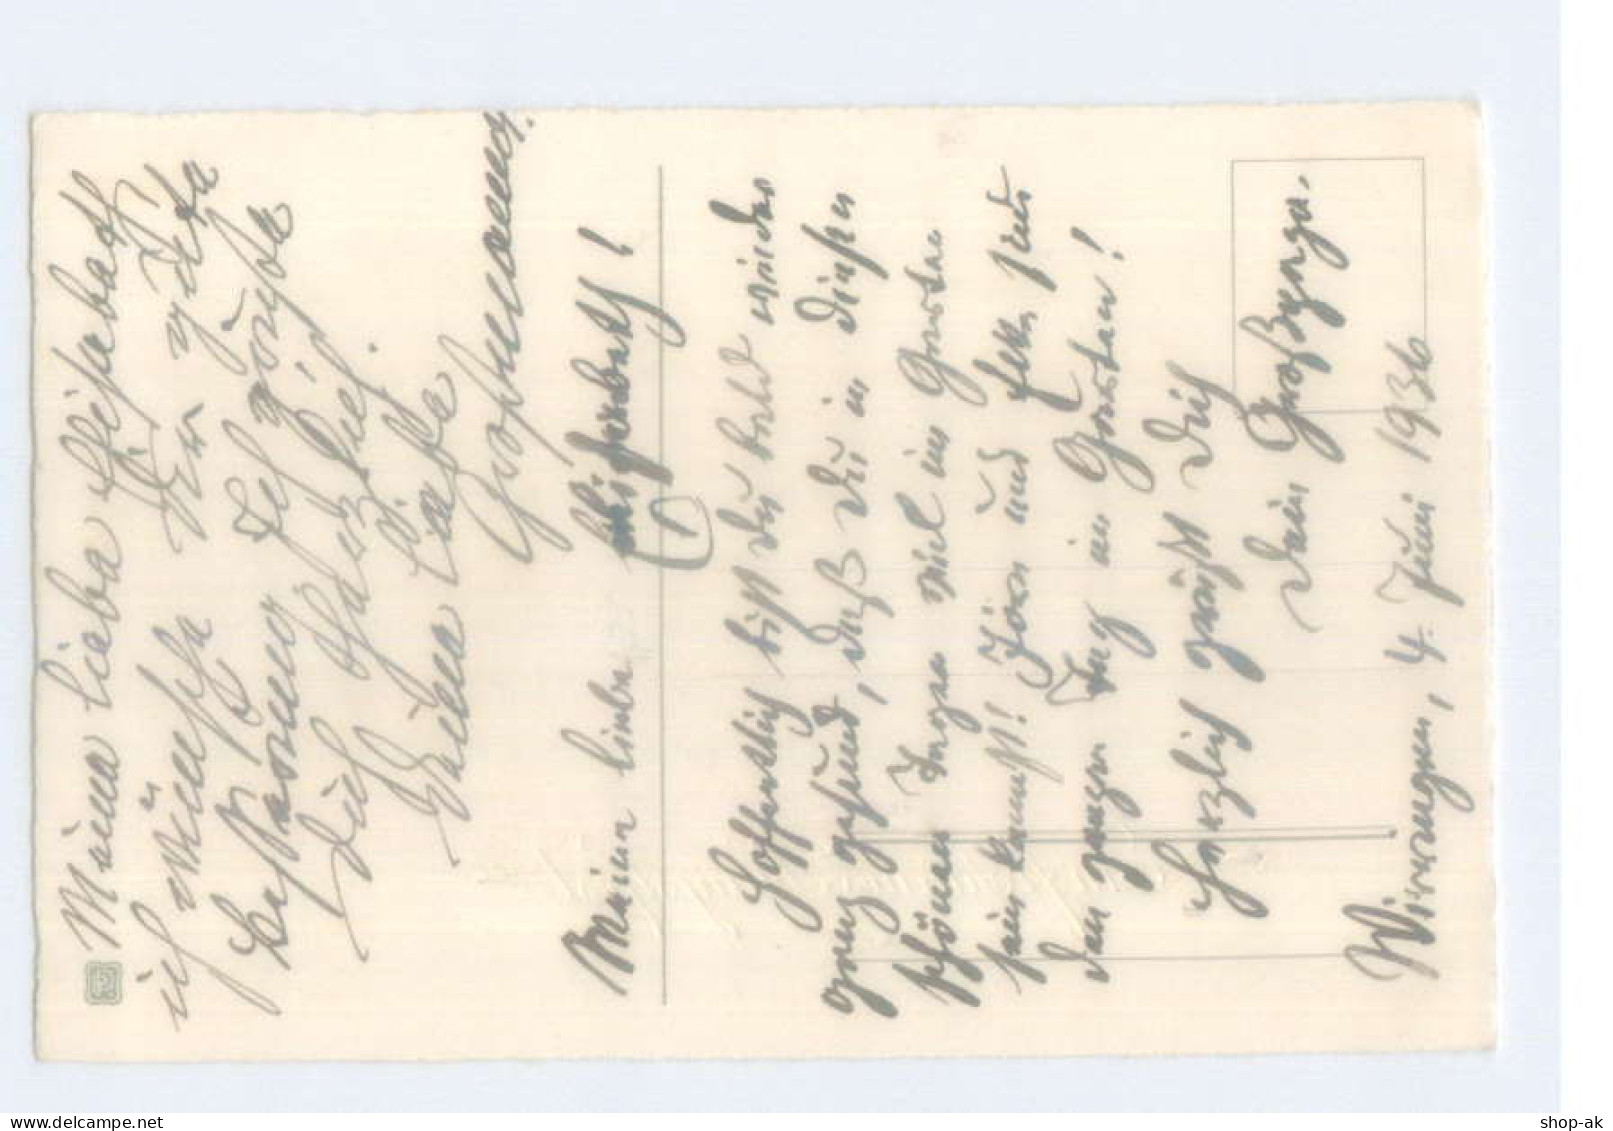 Meine liebe Elisabeth
ich wünsche Dir gute
Besserung Ich grüße
Dich herzlich.
Deine liebe
Großmama.
Meine liebe Elisabeth!
Hoffentlich bist Du bald wieder
ganz gesund, daß Du in diesen
schönen Tagen viel im Garten
sein kannst! Jörn und sind
den ganzen Tag im Garten!
Herzlich grüßt Dich
Dein Großpapa.
4. Juni 1936
shop-ak